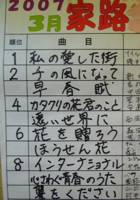 2007
3月 家路
順位 曲目
1 私の愛した街
2 千の風になって
早春賦
4 カタクリの花君のこと
遠い世界に
6 花を贈ろう
ほうせん花
8 インターナショナル
心さわぐ青春のうた
翼をください